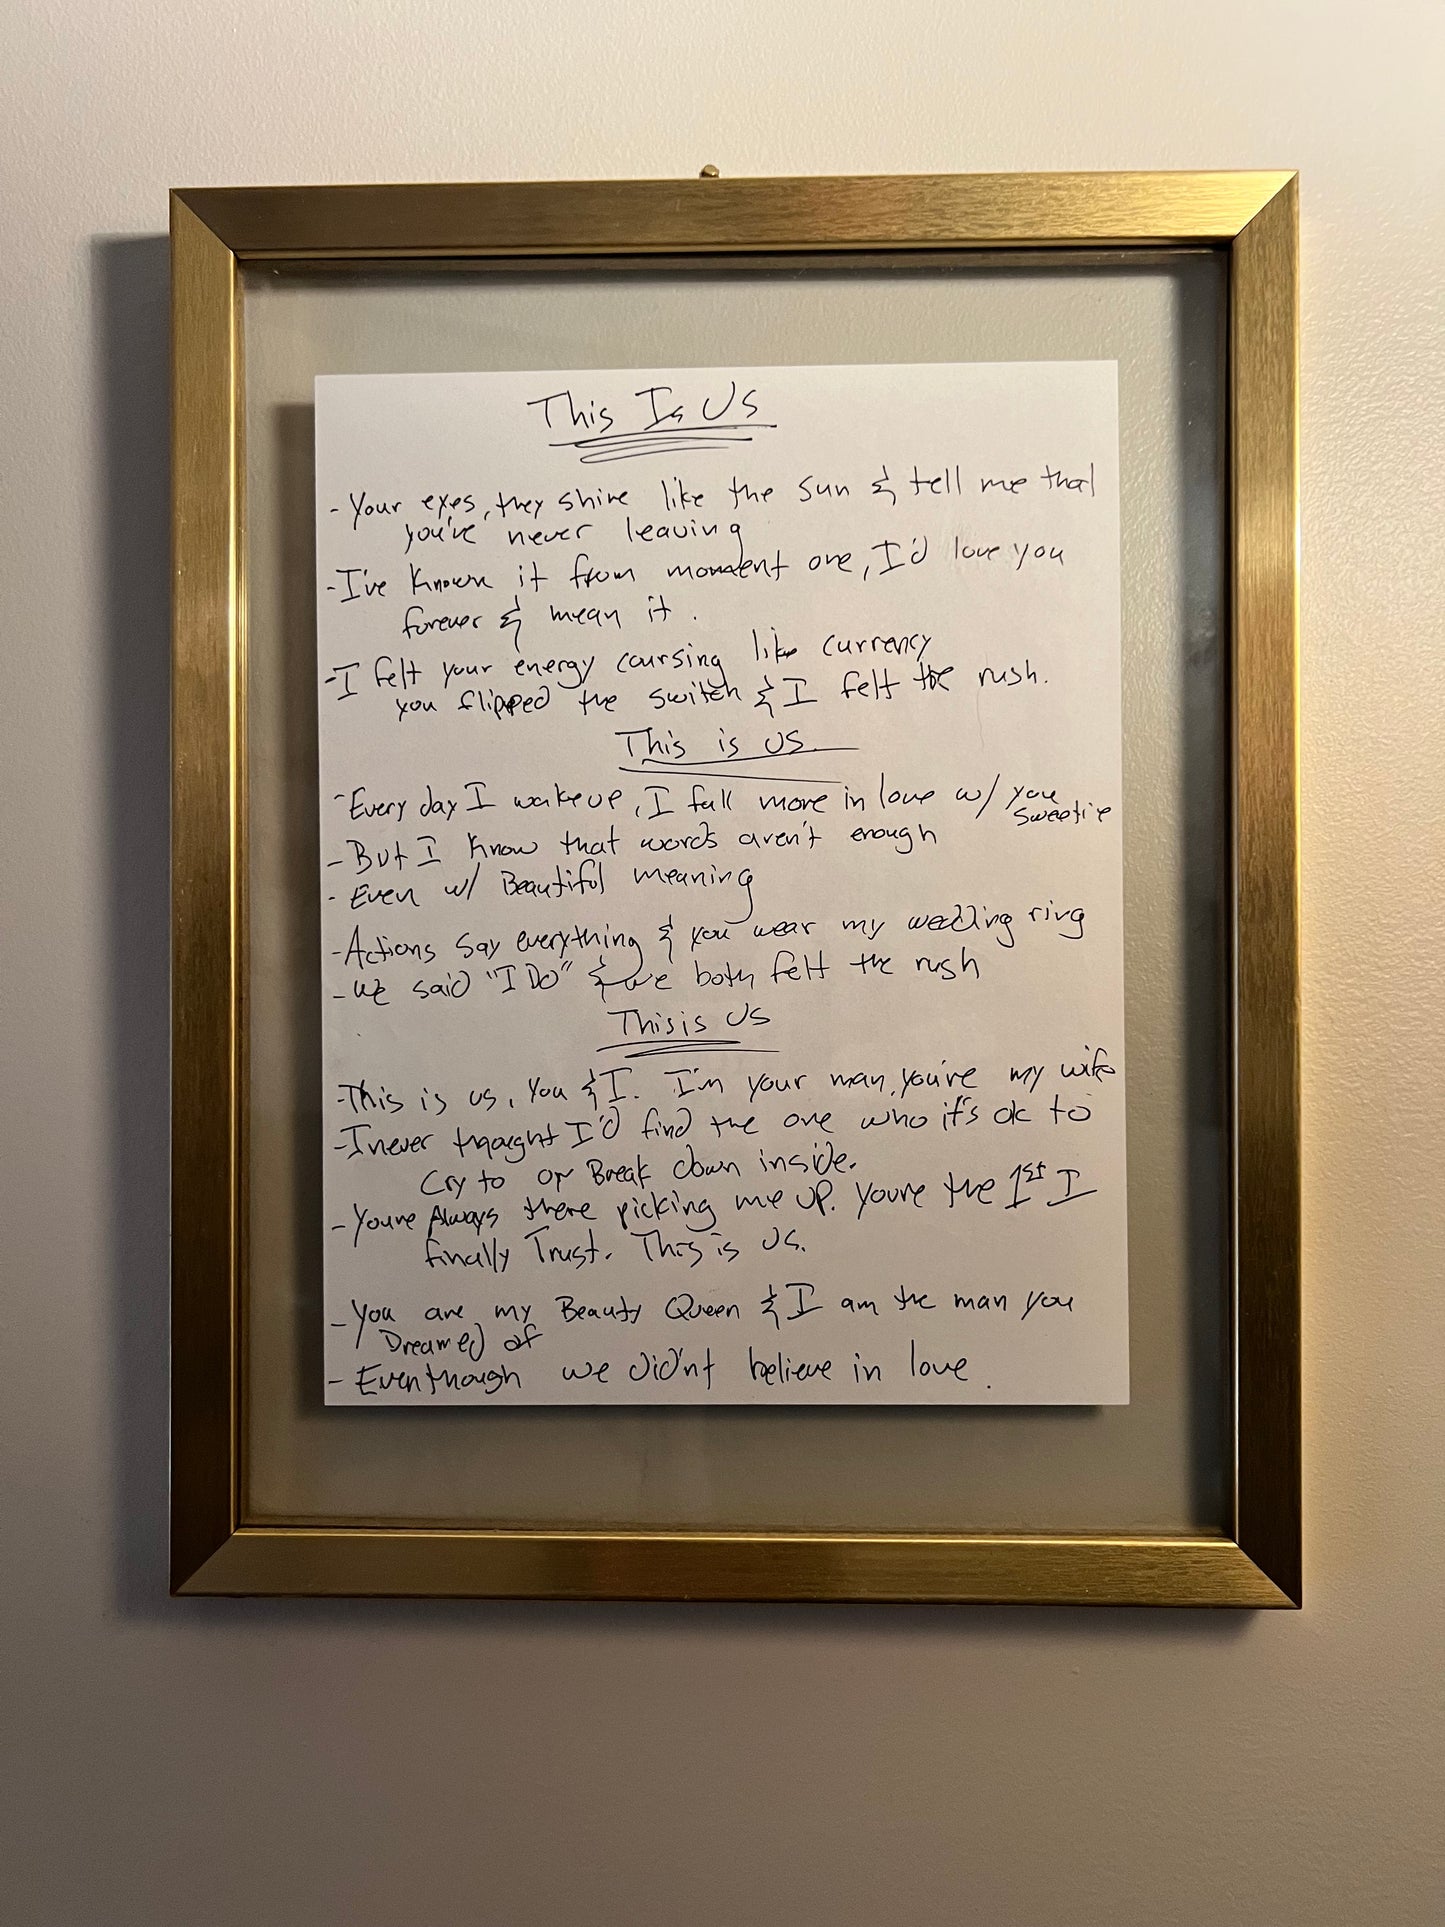 This Is Us
- Your eyes, they shine like the sun & tell me that
you've never leaving
- I've known it from moment one, I'd love you
forever & mean it.
- I felt your energy coursing like currency
you flipped the switch & I felt the rush.
This is us.
- Every day I wake up, I fall more in love w/ you
sweetie
- But I know that words aren't enough
- Even w/ Beautiful meaning
- Actions say everything & you wear my wedding ring
- We said "I Do" & we both felt the rush
This is Us
- This is us, you & I. I'm your man, you're my wife
- I never thought I'd find the one who it's ok to
Cry to or Break down inside.
- You're Always there picking me up. You're the 1st I
finally Trust. This is us.
- You are my Beauty Queen & I am the man you
Dreamed of
- Even though we didn't believe in love.